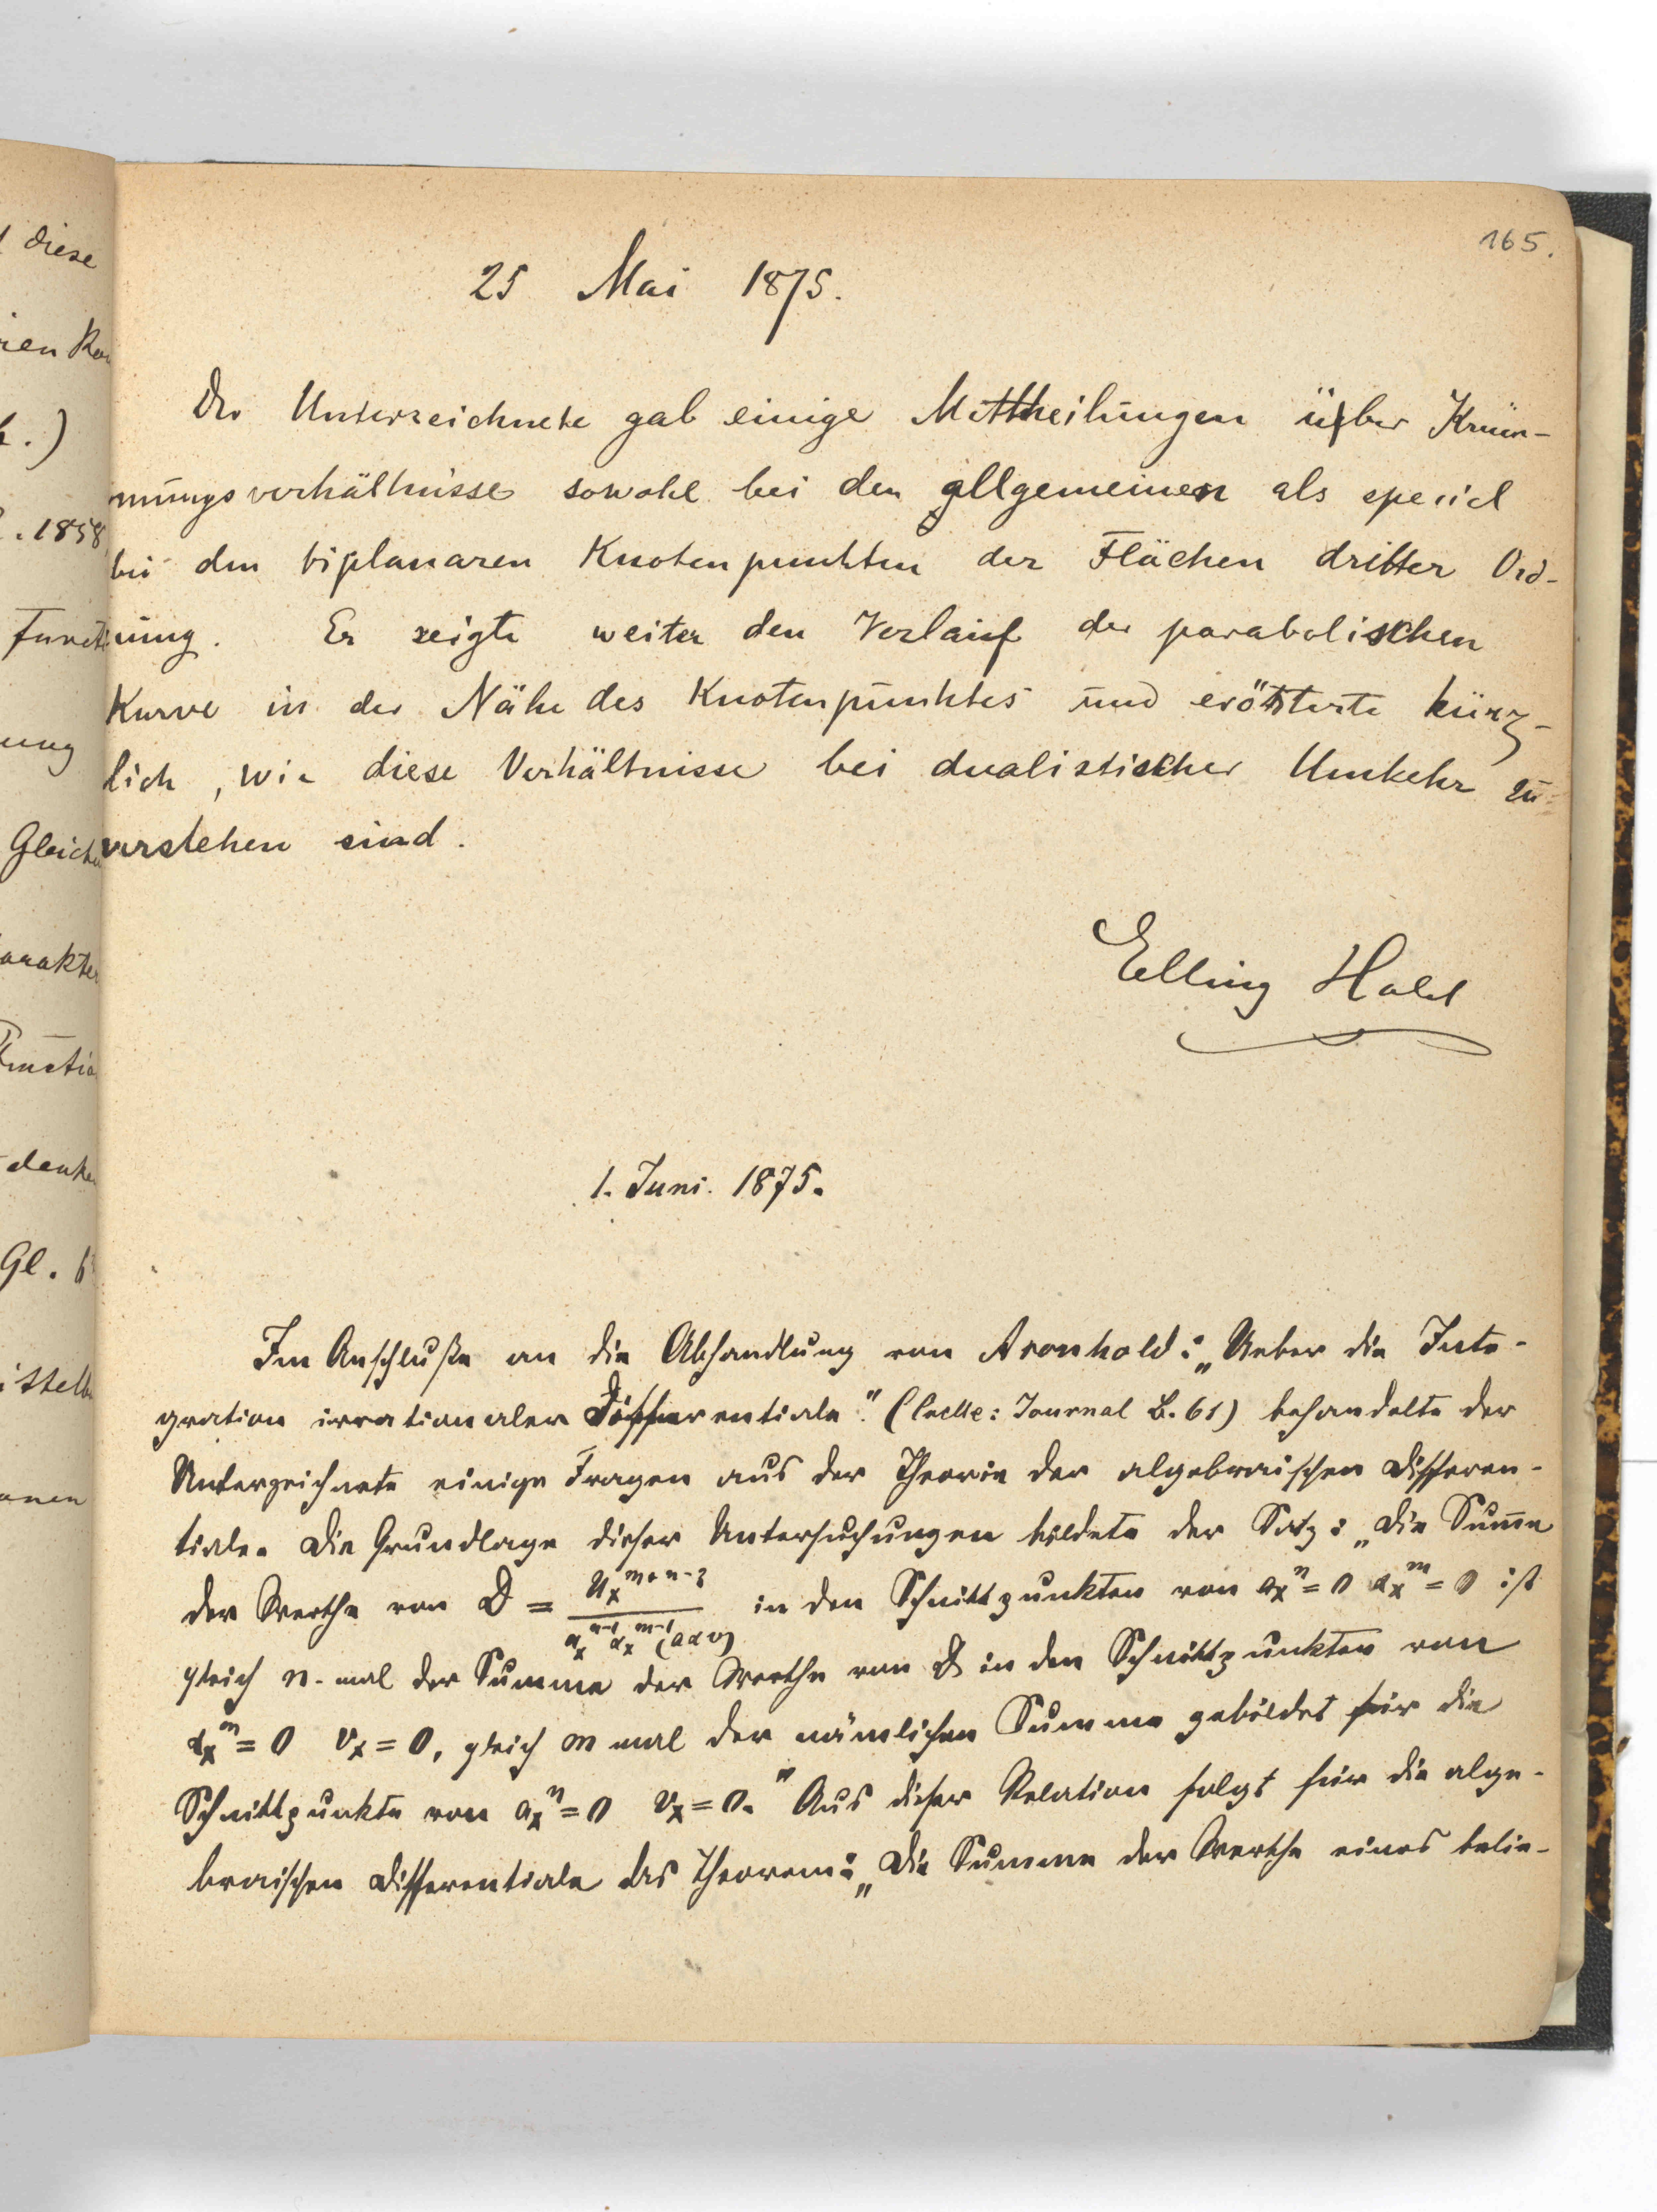 165.
25 Mai 1875.
Der Unterzeichnete gab einige Mittheilungen über Krüm-
mungsverhältnisse sowohl bei den allgemeinen als speciel
bei den biplanaren Knotenpunkten der Flächen dritter Ord-
nung. Er zeigte weiter den Verlauf der parabolischen
Kurve in der Nähe des Knotenpunktes und erörterte kürz-
lich, wie diese Verhältnisse bei dualistischer Umkehr zu
verstehen sind.
Elling Holst
1. Juni. 1875.
Im Anschluße an die Abhandlung von Aronhold: „Ueber die Inte-
gration irrationaler Differentiale." (Crelle: Journal B. 61) behandelte der
Unterzeichnete einige Fragen aus der Theorie der algebraischen Differen-
tiale. Die Grundlage dieser Untersuchungen bildete der Satz: „Die Summe
der Werthe von D = U_x^{m+n-3} / a_x^{n-1} α_x^{m-1} (a α v) in den Schnittpunkten von a_x^n = 0 α_x^m = 0 ist
gleich n-mal der Summe der Werthe von D in den Schnittpunkten von
α_x^m = 0 v_x = 0, gleich m mal der nämlichen Summe gebildet für die
Schnittpunkte von a_x^n = 0 v_x = 0." Aus dieser Relation folgt für die alge-
braischen Differentiale das Theorem: „Die Summe der Werthe eines belie-
diese
ien
.)
. 1858
Functi
ung
Gleich
arakte
Gl. 6